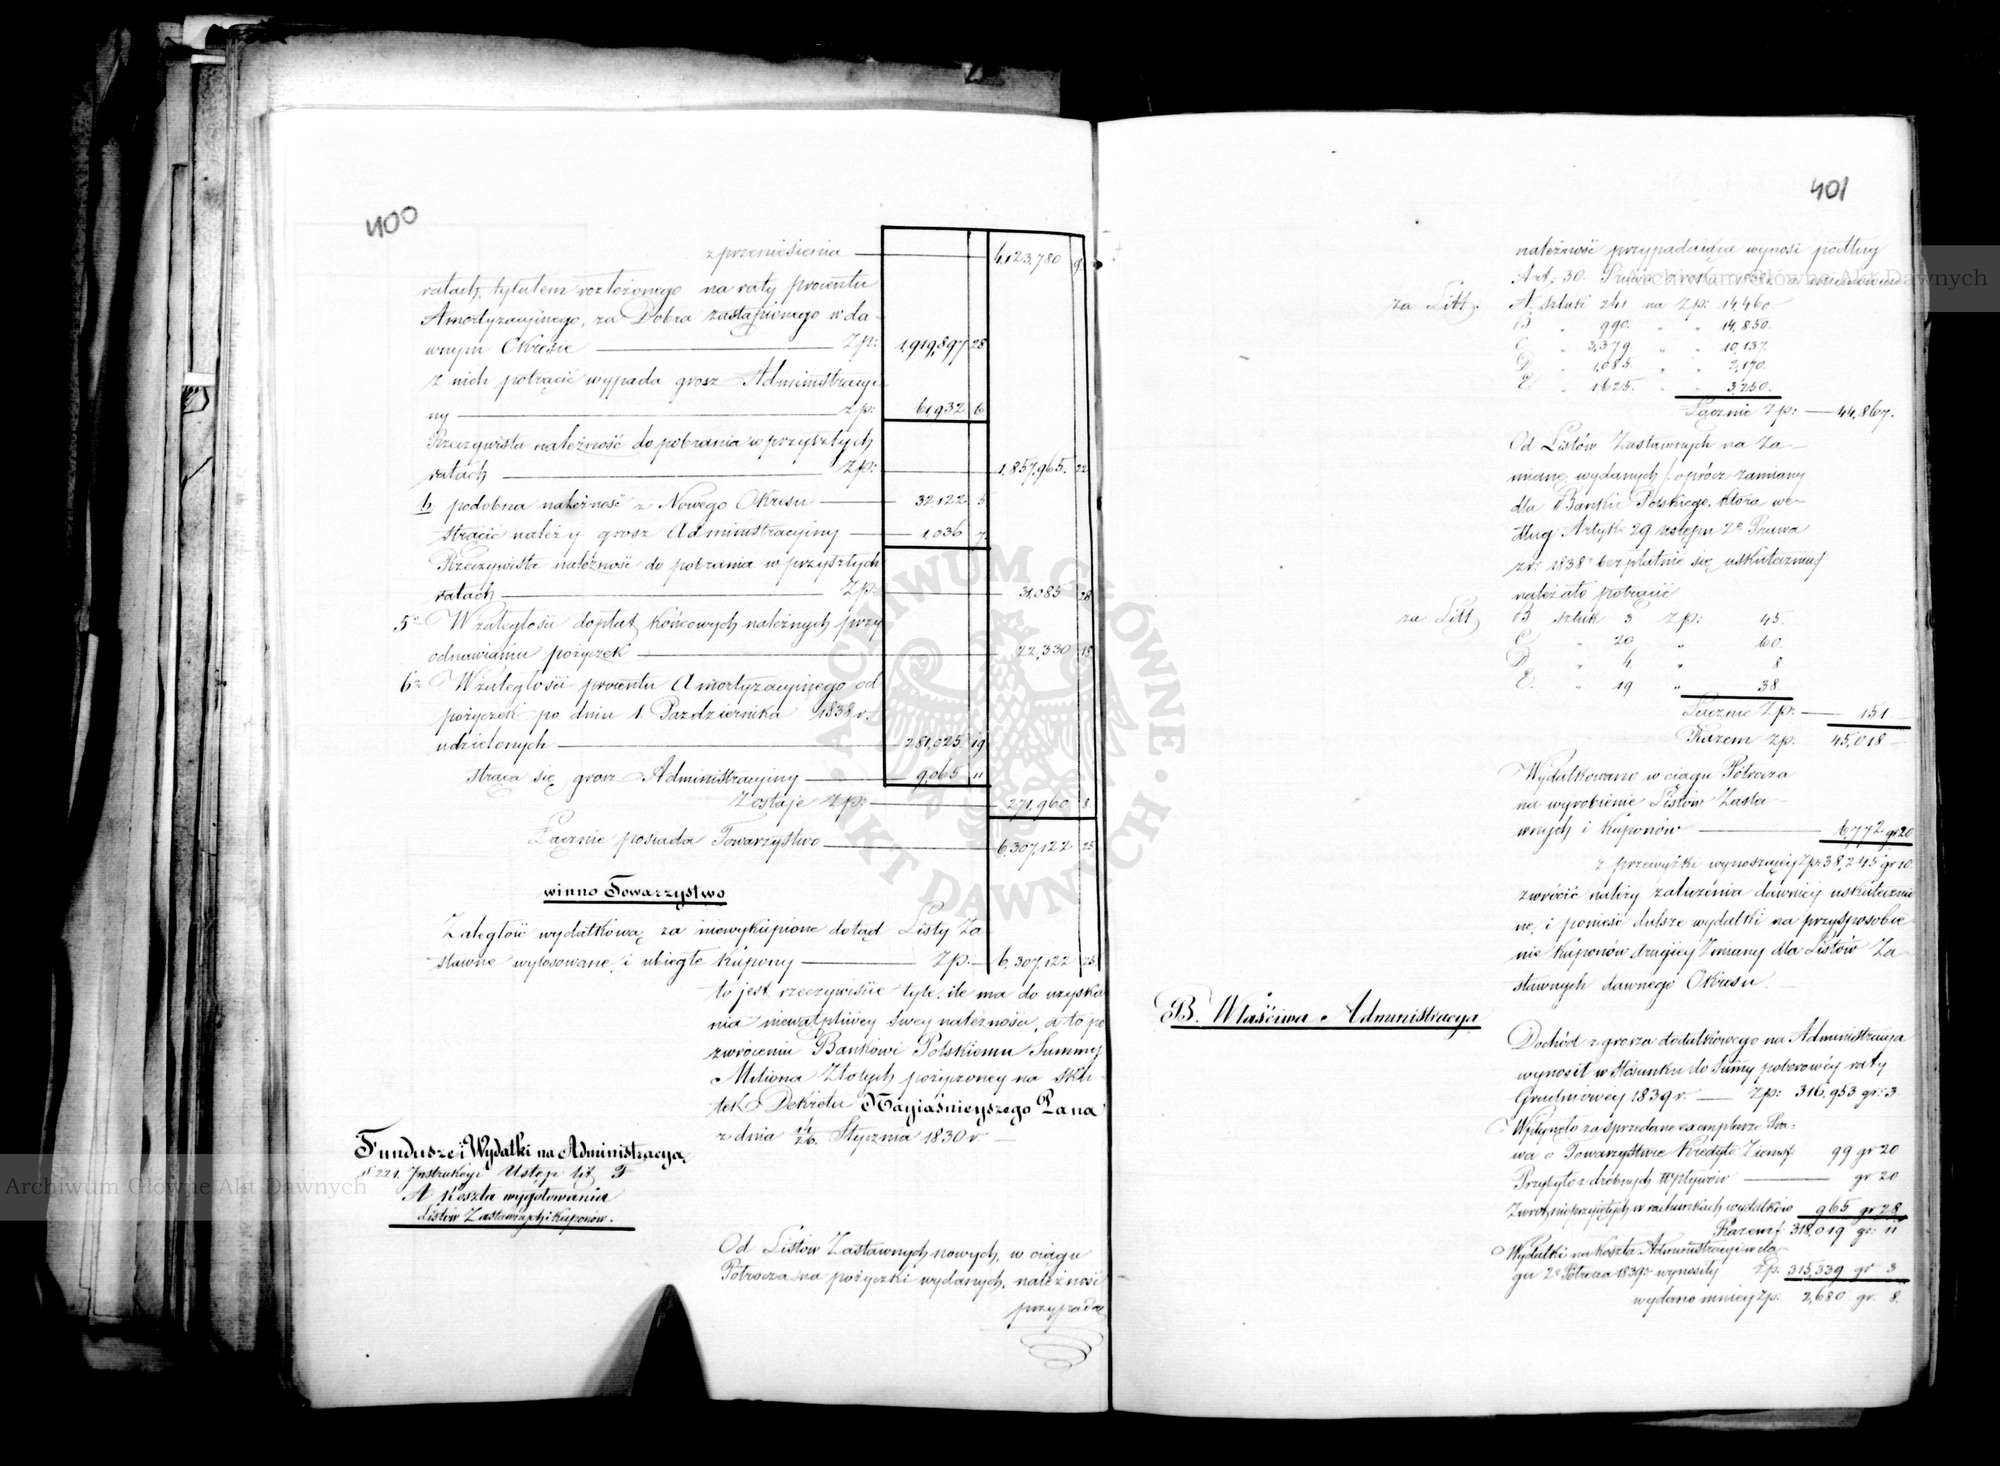 400
z przeniesienia — 4,123,780 9
ratach, tytułem rozłożonego na raty procentu
Amortyzacyjnego, za Dobra zastąpionego w da-
wnym Okresie — Zp: 1,919,897 28
z nich potrącić wypada grosz Administracyi-
ny — zp: 61,932 6
Rzeczywista należność do pobrania w przyszłych
ratach — Zp: — 1,857,965. 22
b. podobna należność z Nowego Okresu — 32,122 5
strącić należy grosz Administracyiny — 1,036 7
Rzeczywista należność do pobrania w przyszłych
ratach — Zp: — 31,085 28
5o W zaległości dopłat końcowych należnych przy
odnawianiu pożyczek — 22,330 18
6o W zaległości procentu Amortyzacyjnego od
pożyczek po dniu 1. Pazdziernika 1838 r.
udzielonych — 281,025 19
strąca się grosz Administracyjny — 9,065 11
Zostaje Zp: — 271,960 8
Łącznie posiada Towarzystwo — 6,307,122 25
winno Towarzystwo
Zaległość wydatkową za niewykupione dotąd Listy Za
stawne wylosowane, i ubiegłe kupony — Zp. — 6,307,122 25
to jest rzeczywiście tyle, ile ma do uzyska
nia niewątpliwey swey należności, a to po
zwróceniu Bankowi Polskiemu Summy
Miliona Złotych pożyczoney na sku-
tek Dekretu Nayiaśnieyszego Pana
z dnia 14/26 Stycznia 1830 r —
Fundusze i Wydatki na Administracyą
§ 221. Instrukcyi Ustęp lit. F
A Koszta wygotowania
Listów Zastawnych i Kuponów.
Od Listów Zastawnych nowych, w ciągu
Półrocza na pożyczki wydanych, należność
przypada
401
należność przypadaiąca wynosi podług
Art. 30. Prawa z roku 1838. a mianowicie
za Litt. A sztuki 241 na Zp: 14,460
B " 990. " " 14,850.
C " 3,379. " " 10,137.
D " 1,085. " " 2,170.
E " 1,625. " " 3,250.
Łącznie Zp: — 44,867.
Od Listów Zastawnych na Za-
mianę wydanych /: oprócz zamiany
dla Banku Polskiego, która we-
dług Artyk: 29 ustępu 2o Prawa
z r: 1838 bezpłatnie się uskutecznia/
należało potrącić
za Litt B sztuk 3 Zp: 45.
C " 20 " 60.
D " 4 " 8
E. " 19 " 38.
Łącznie Zp: — 151
Razem Zp: 45,018 —
Wydatkowano w ciągu Półrocza
na wyrobienie Listów Zasta-
wnych i Kuponów — 6,772 gr 20
z przewyżki wynoszącey Zp: 38,245 gr 10.
zwrócić należy zaliczenia dawniey uskutecznio
ne, i ponieść dalsze wydatki na przysposobie
nie Kuponów drugiey Zmiany dla Listów Za-
stawnych dawnego Okresu. —
B. Właściwa Administracya
Dochód z grosza dodatkowego na Administracyą
wynosił w stosunku do Summy poborowéy raty
Grudniowey 1839 r. — Zp: 316,953 gr: 3.
Wpłynęło za sprzedane exemplarze Pra-
wa o Towarzystwie Kredyto: Ziemsk 99 gr 20
Przybyło z drobnych Wpływów — gr 20
Zwrot nieprzyjętych w rachunkach wydatków 965 gr 28
Razem f. 318,019 gr: 11
Wydatki na koszta Administracyi w cią-
gu 2o Półrocza 1839 r wynosiły Zp: 315,339 gr 3
wydano mniey Zp: 2,680 gr. 8.
ARCHIWUM GŁÓWNE
AKT DAWNYCH
Archiwum Główne Akt Dawnych
Archiwum Główne Akt Dawnych